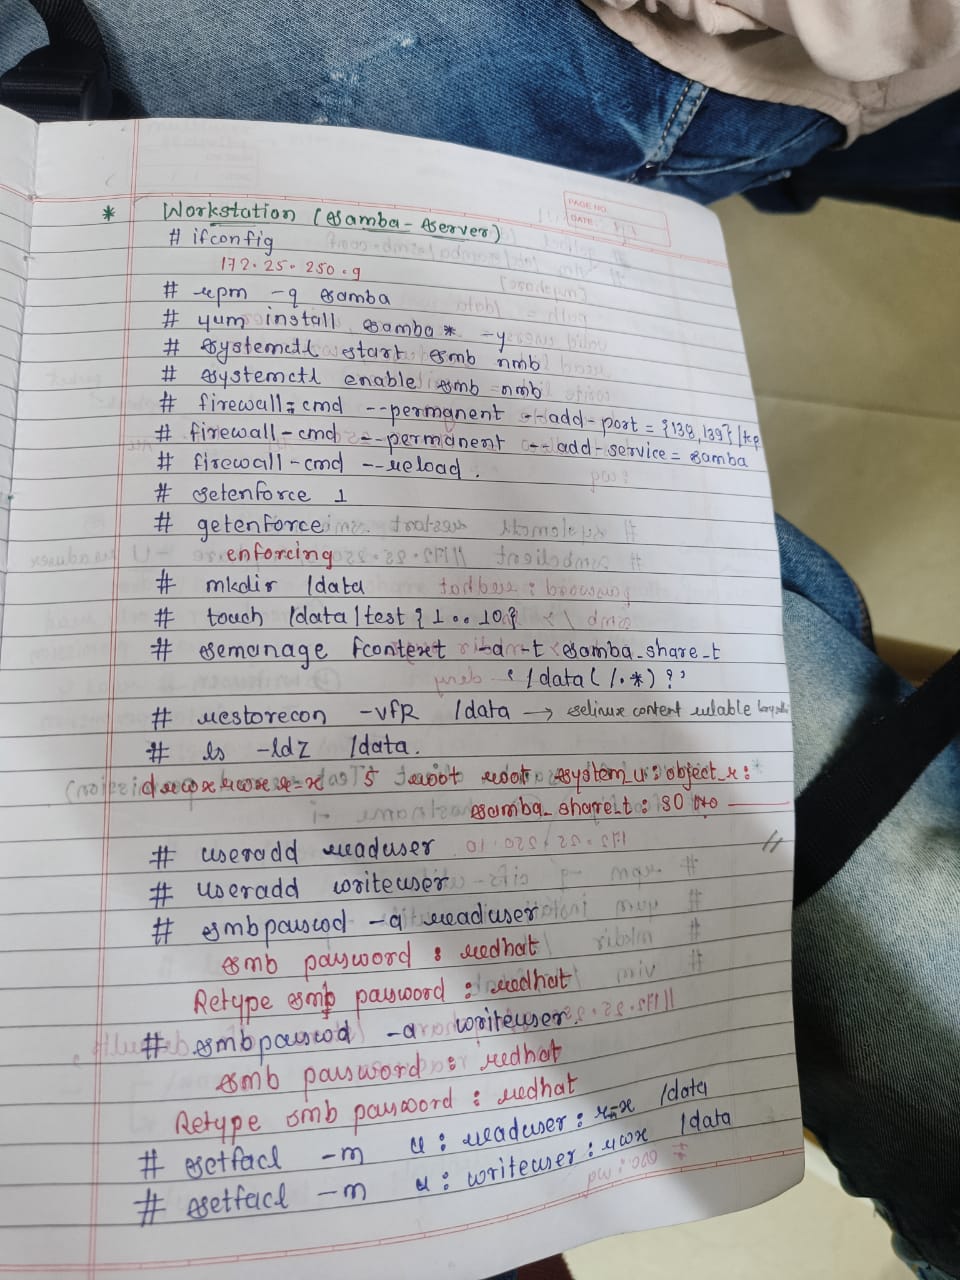 PAGE NO.
DATE
* Workstation (samba - server)
# ifconfig
172.25.250.9
# rpm -q samba
# yum install samba* -y
# systemctl start smb nmb
# systemctl enable smb nmb
# firewall-cmd --permanent --add-port={138,139}/tcp
# firewall-cmd --permanent --add-service=samba
# firewall-cmd --reload.
# setenforce 1
# getenforce
enforcing
# mkdir /data
# touch /data/test{1..10}
# semanage fcontext -a -t samba_share_t
'/data(/.*)?'
# restorecon -vfR /data → selinux content
# ls -ldZ /data.
drwxrwxr-x 5 root root system_u:object_r:
samba_share_t:s0
# useradd readuser
# useradd writeuser
# smbpasswd -a readuser
smb password : redhat
Retype smb password : redhat
# smbpasswd -a writeuser
smb password : redhat
Retype smb password : redhat
# setfacl -m u:readuser:r-x /data
# setfacl -m u:writeuser:rwx /data